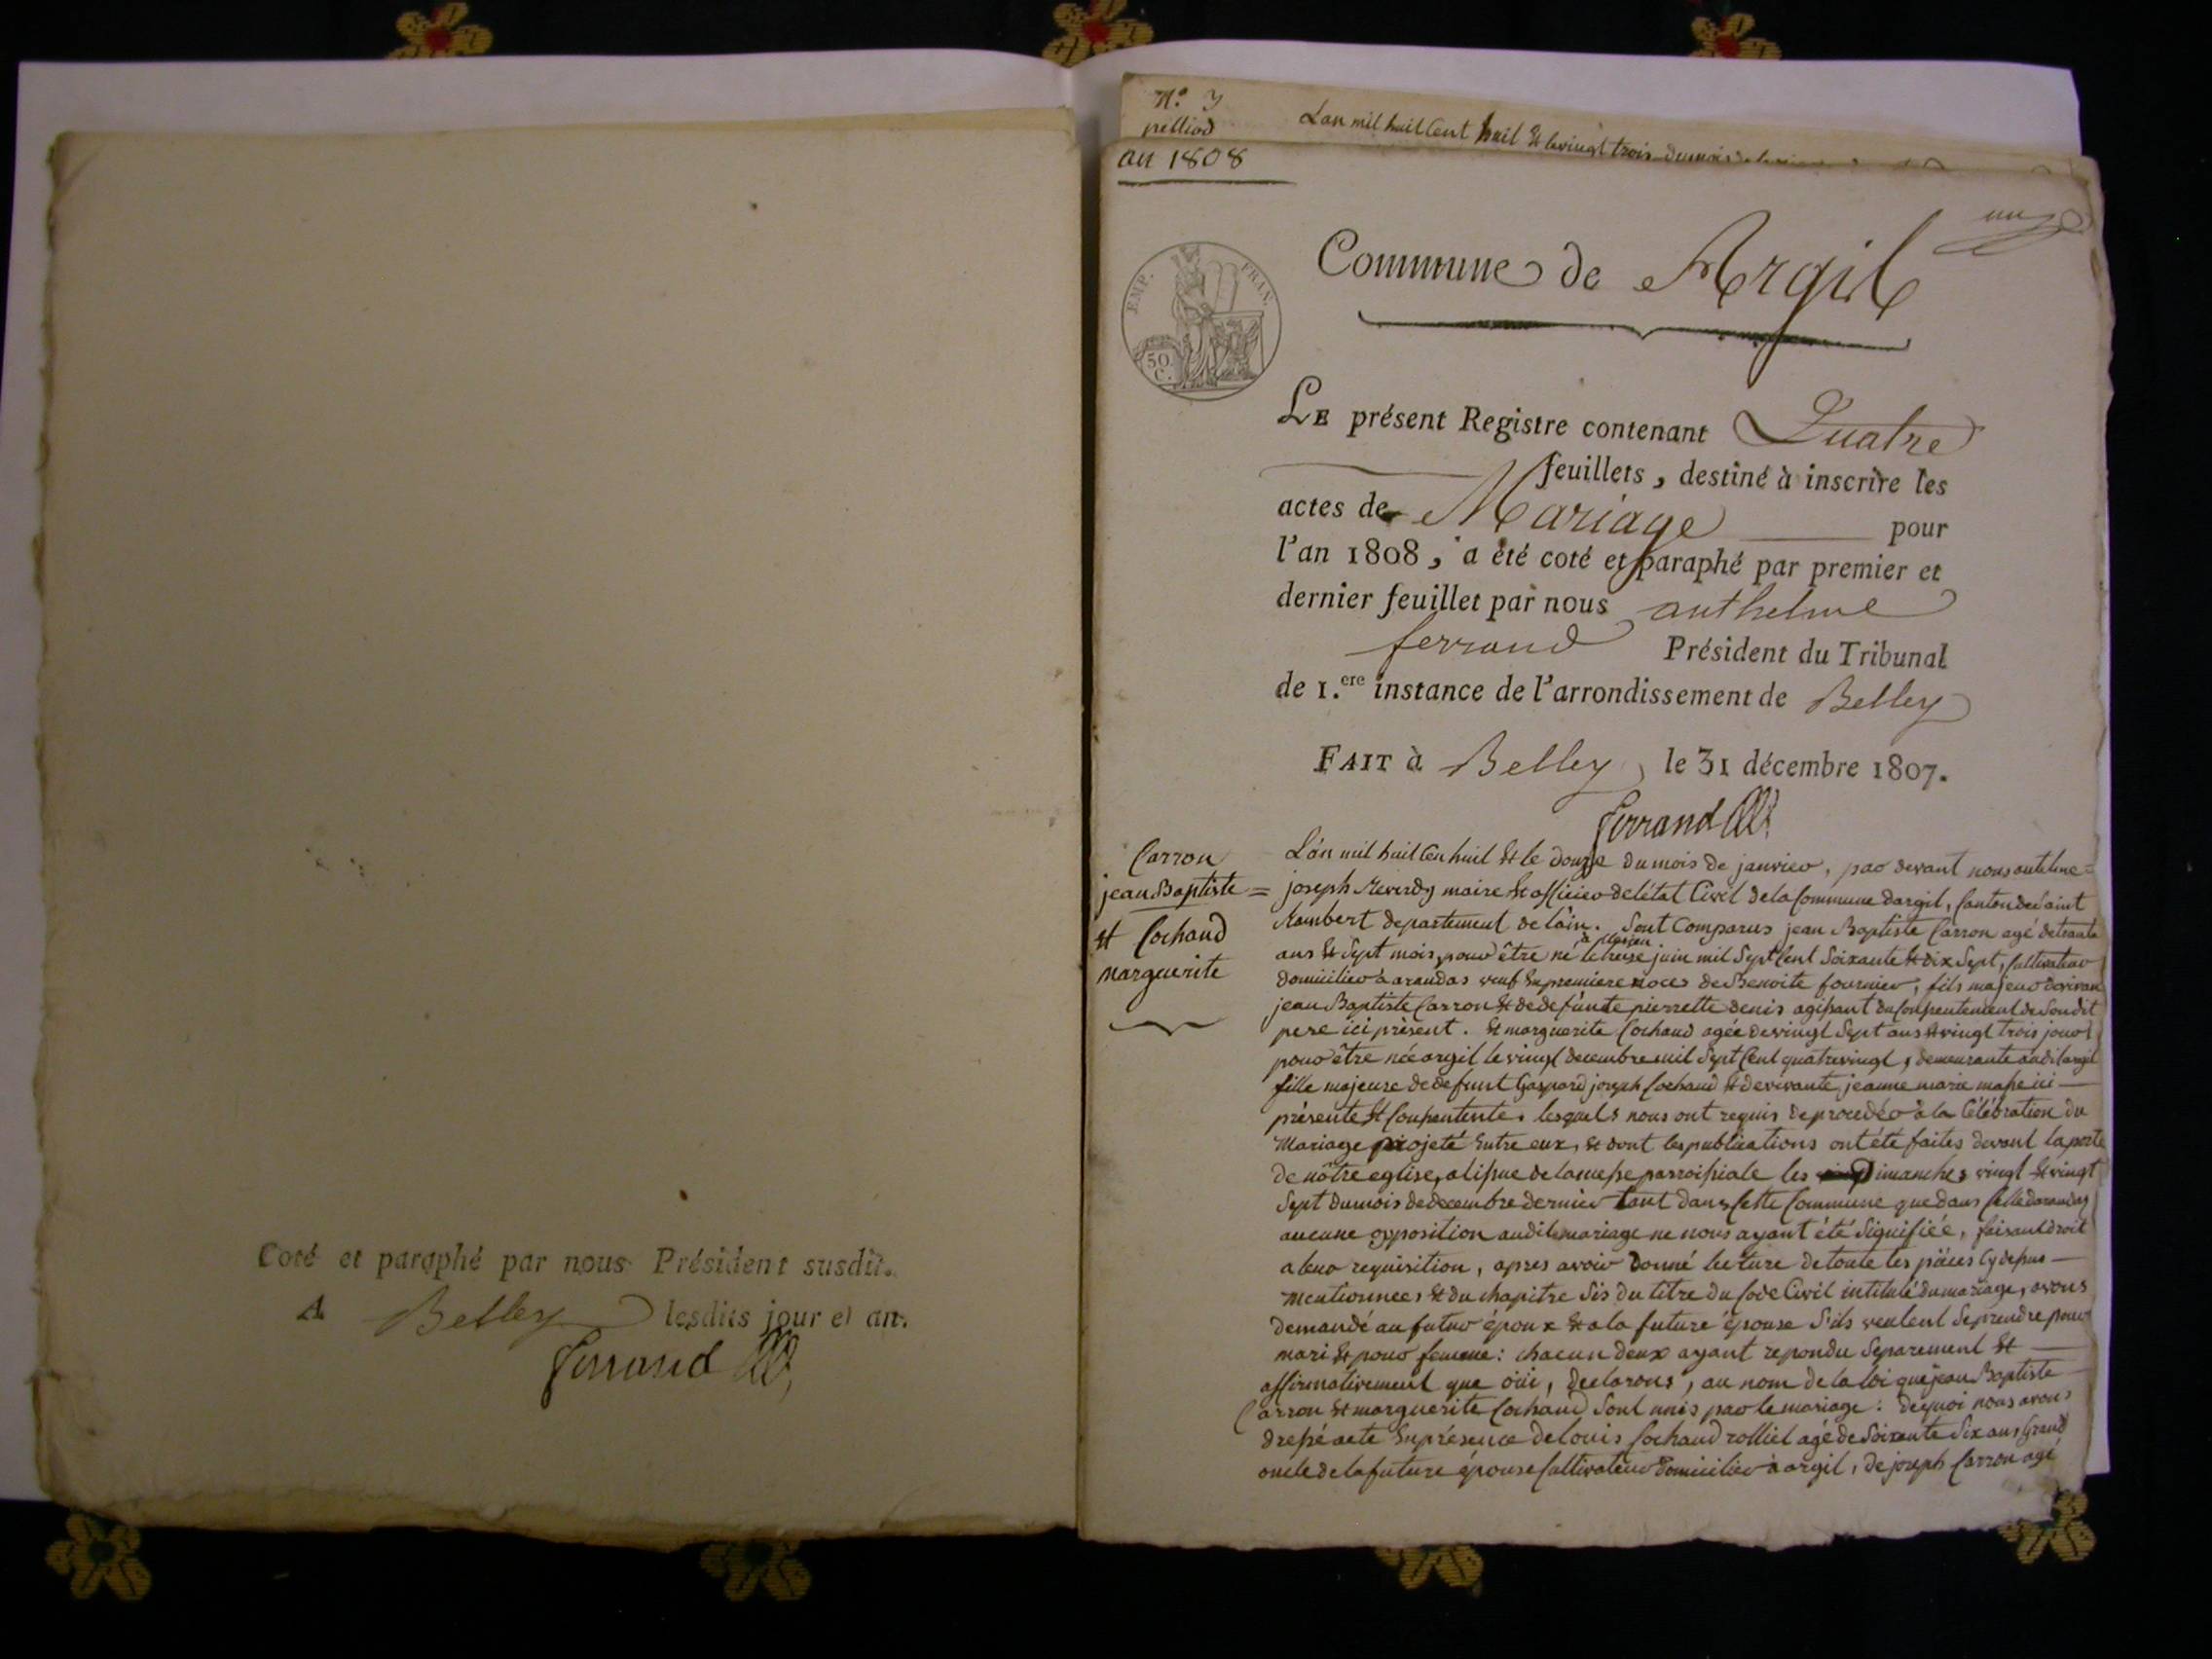 Coté et paraphé par nous Président susdit.
A Belley lesdits jour et an.
Ferrand
N.º 3
pelliod
L'an mil huit Cent huit & le vingt trois du mois de
an 1808
un
EMP. FRAN.
50 C.
Commune de Argil
LE présent Registre contenant Quatre
feuillets, destiné à inscrire les
actes de Mariage pour
l'an 1808, a été coté et paraphé par premier et
dernier feuillet par nous anthelme
ferrand Président du Tribunal
de 1.ere instance de l'arrondissement de Belley
FAIT à Belley, le 31 décembre 1807.
Ferrand
Carron
jean Baptiste =
et Cochand
marguerite
L'an mil huit Cen huit & le douze du mois de janvier, par devant nous antelme =
joseph Reverdy maire & officier de létat Civil de la Commune dargil, Canton de Saint
Rambert departement de lain. Sont Comparus jean Baptiste Carron agé de trante
ans & Sept mois, pour être né à le treize juin mil Sept Cent Soixante & dix Sept, Cultivateur
domicilier à arandas veuf En premiere noces de Benoite fournier, fils majeur de vivan
jean Baptiste Carron & de defunte pierrette denis agissant du Consentement de Son dit
pere ici présent. & marguerite Cochaud agée de vingt Sept ans & vingt trois jours
pour être née argil le vingt decembre mil Sept Cent quatrevingt, demeurante audit argil
fille majeure de defunt Gaspard joseph Cochaud & de vivante jeanne marie masse ici —
présente & Consentente. lesquels nous ont requis de procedér à la Célébration du
Mariage projeté Entre eux, & dont les publications ont été faites devant la porte
de nôtre eglise, a lissue de la messe parroissiale les Dimanches vingt & vingt
Sept du mois de decembre dernier tant dans Cette Commune que dans Celle darandas
aucune opposition audit mariage ne nous ayant été Signifiée, faisant droit
a leur requisition, apres avoir donné lecture de toute les piéces Cy dessus —
mentionnees & du chapitre Sis du titre du Code Civil intitulé du mariage, avons
demandé au futur époux & a la future épouse S'ils veulent Se prendre pour
mari & pour femme: chacun deux ayant repondu Separement & —
affirmativement que oüi, declarons, au nom de la loi que jean Baptiste
Carron & marguerite Cochaud Sont unis par le mariage: de quoi nous avons
dressé acte En présence de louis Cochaud rolliet agé de Soixante Six ans Grand
oncle de la future épouse Cultivateur domicilier à argil, de joseph Carron agé